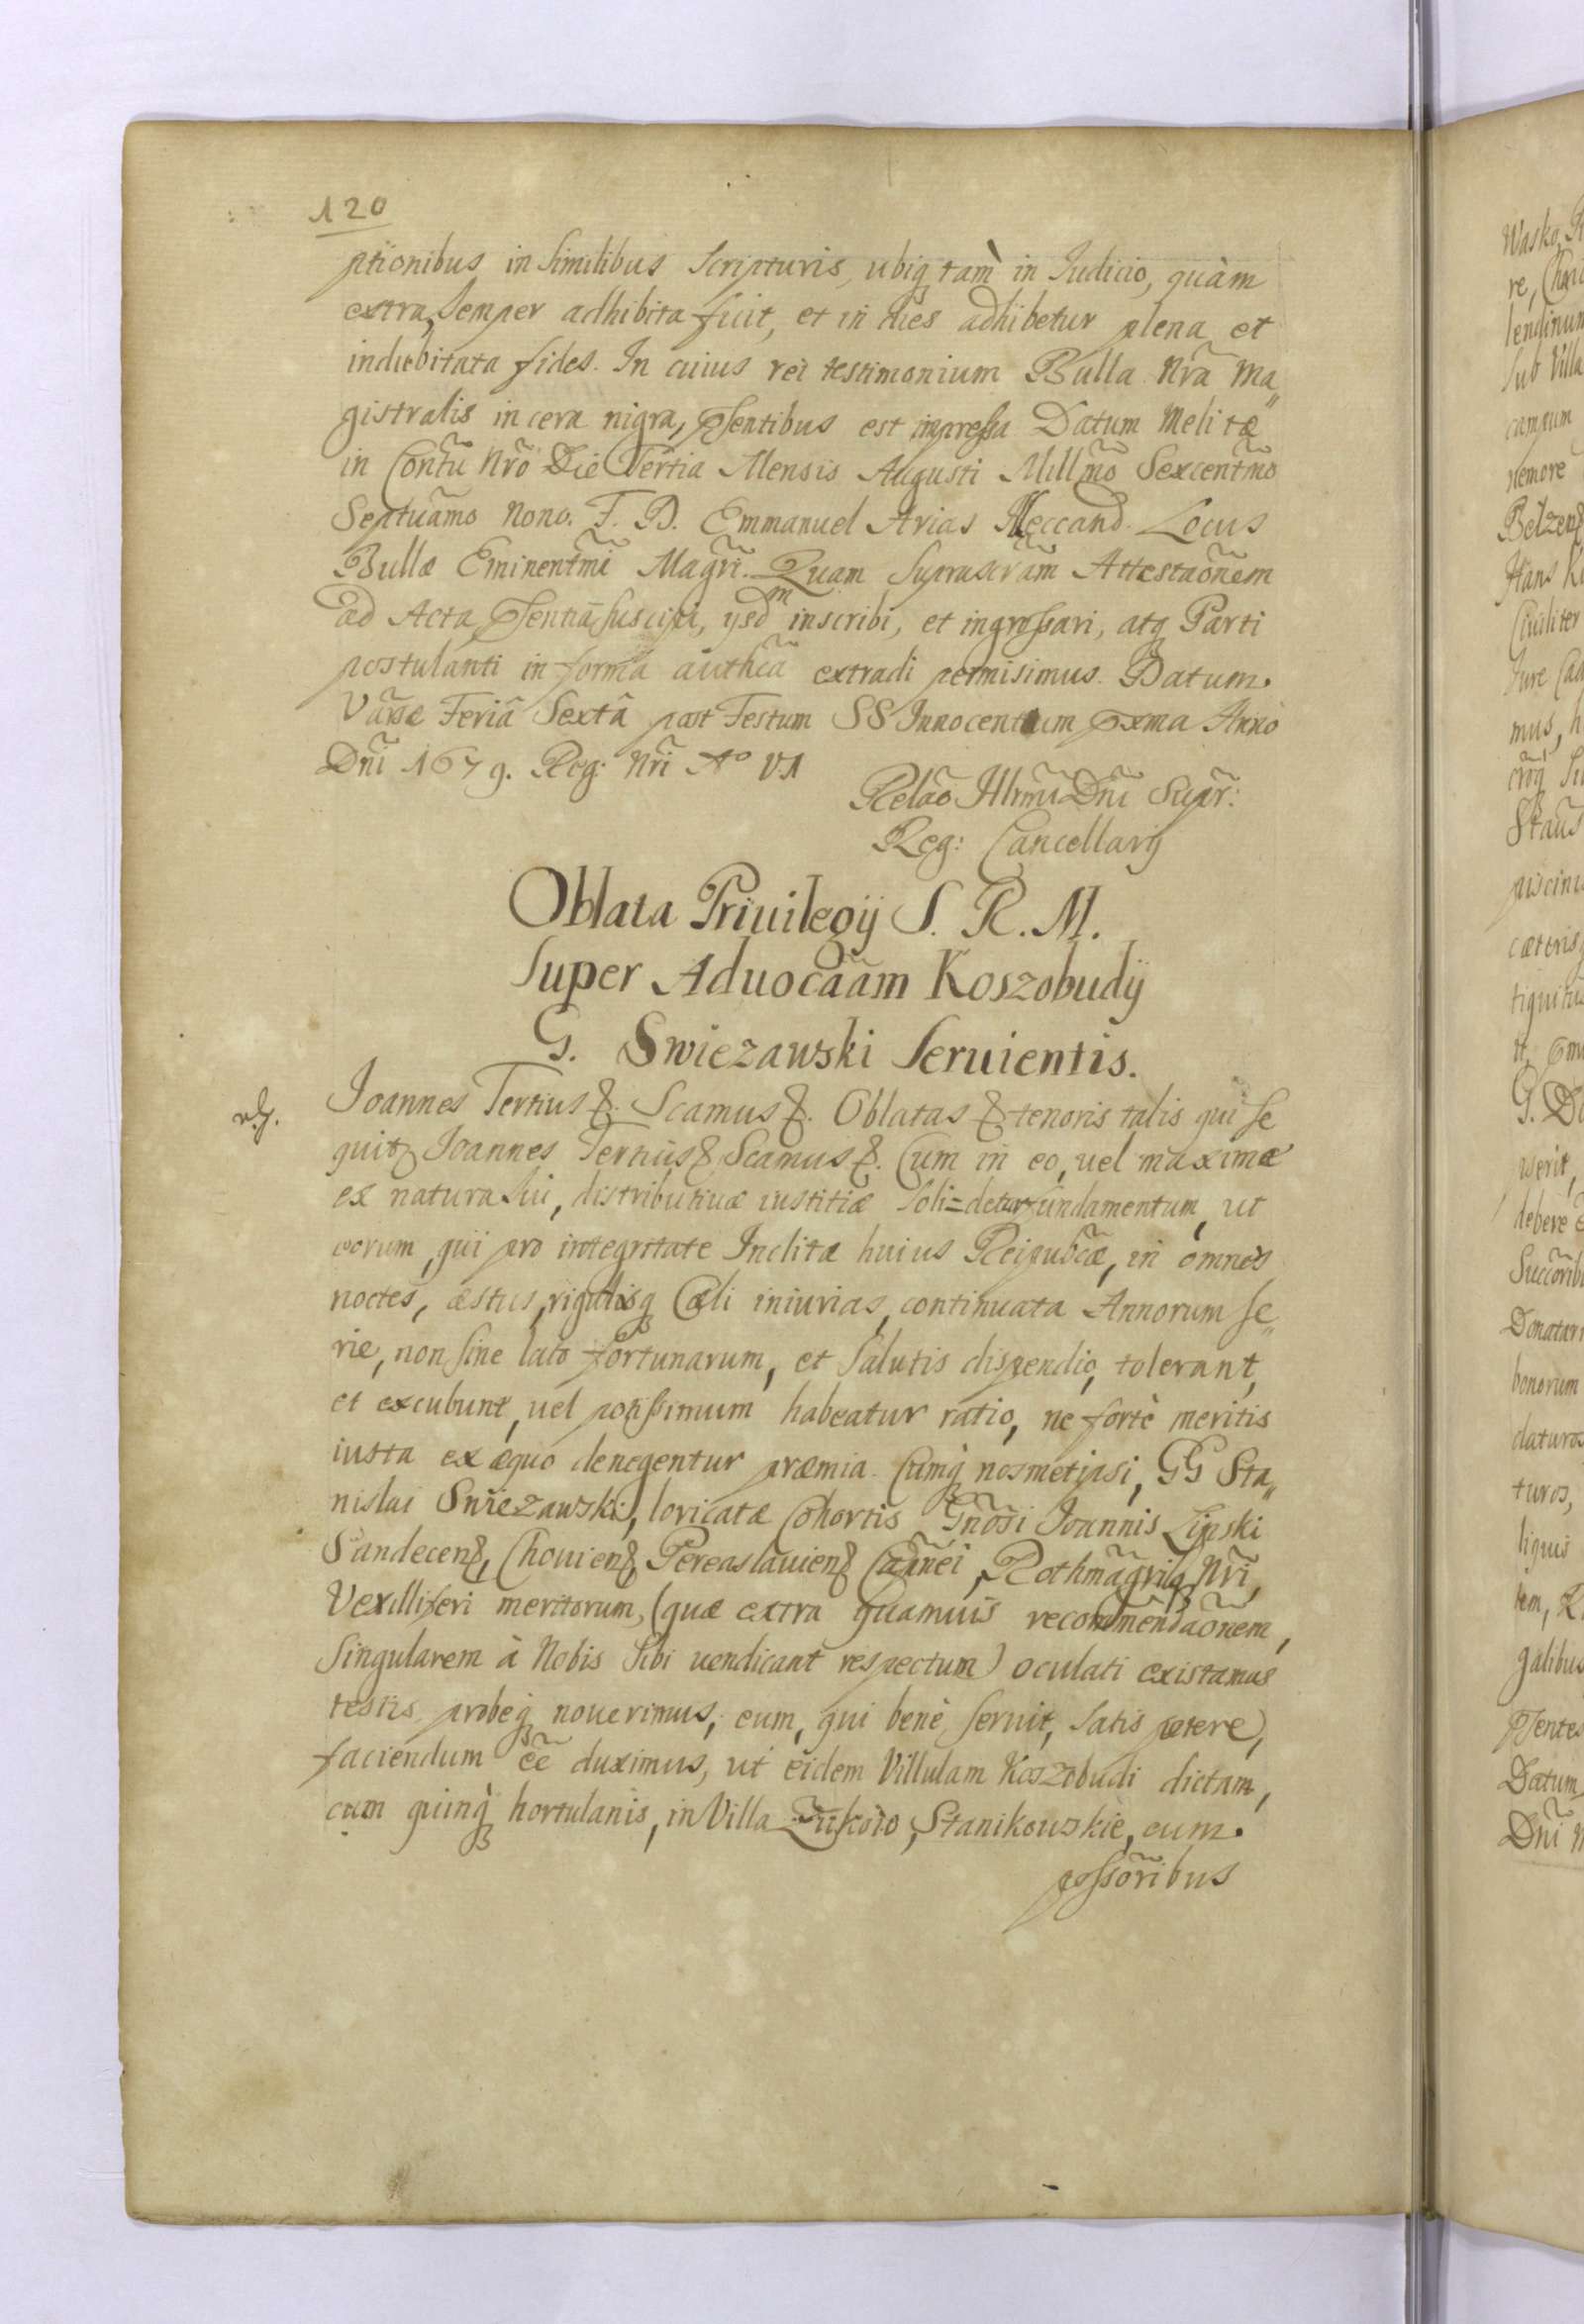 120
ptionibus in similibus Scripturis, ubiq tam in Iudicio, quàm
extra, semper adhibita fuit, et in dies adhibetur plena et
indubitata fides. In cuius rei testimonium Bulla Nrã Ma„
gistralis in cera nigra, pñtibus est impressa Datum Melitæ
in Contũ Nrõ Die Tertia Mensis Augusti Millmõ Sexcentmõ
Septuãmo Nono. F. D. Emmanuel Arias Vceccand. Locus
Bullæ Eminentmi Magri. Quam Suprascrãm Attestaõnem
ad Acta pñtia suscipi, ysdm inscribi, et ingrossari, atq Parti
postulanti in forma authcã extradi permisimus. Datum
Varsæ Feriâ Sextâ post Festum SS Innocentum pxma Anno
Dni 1679. Reg: Nri Aº VI
Relaõ Illrmi Dni Supr:
Reg: Cancellarij
Oblata Priuilegij S. R. M.
super Aduocaãm Koszobudij
G. Swiezawski seruientis.
Joannes Tertius &. Scamus &. Oblatas & tenoris talis qui se
quitr Joannes Tertius & Scamus &. Cum in eo, uel maximæ
ex natura sui, distributiuæ iustitiæ soli=detur fundamentum, ut
eorum, qui pro integritate Inclitæ huius Reipubcæ, in omnes
noctes, æstus, rigidisq Cæli iniurias, continuata Annorum se„
rie, non sine lato fortunarum, et salutis dispendio, tolerant,
et excubunt, uel potissimum habeatur ratio, ne fortè meritis
iusta ex æquo denegentur præmia. Cumq nosmetipsi, GG Sta„
nislai Swiezawski, loricatæ Cohortis Gnõsi Joannis Lipski
Sandecen&, Chouien& Pereaslauien& Capnei, Rothmagriq Nri,
Vexilliferi meritorum, (quæ extra quamuis recommendaõnem,
singularem à Nobis sibi uendicant respectum) oculati existamus
testis, probeq nouerimus, eum, qui benè seruit, satis petere,
faciendum eẽ duximus, ut eidem Villulam Koszobudi dictam,
cum quinq hortulanis, in Villa Zukowo, Stanikowskie, cum
possõribus